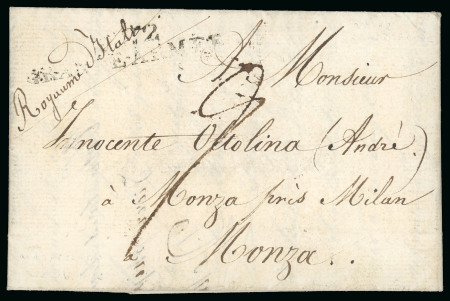 Royaume d'Italie
A Monsieur
Innocente Ottolina (André)
à Monza près Milan
à Monza..